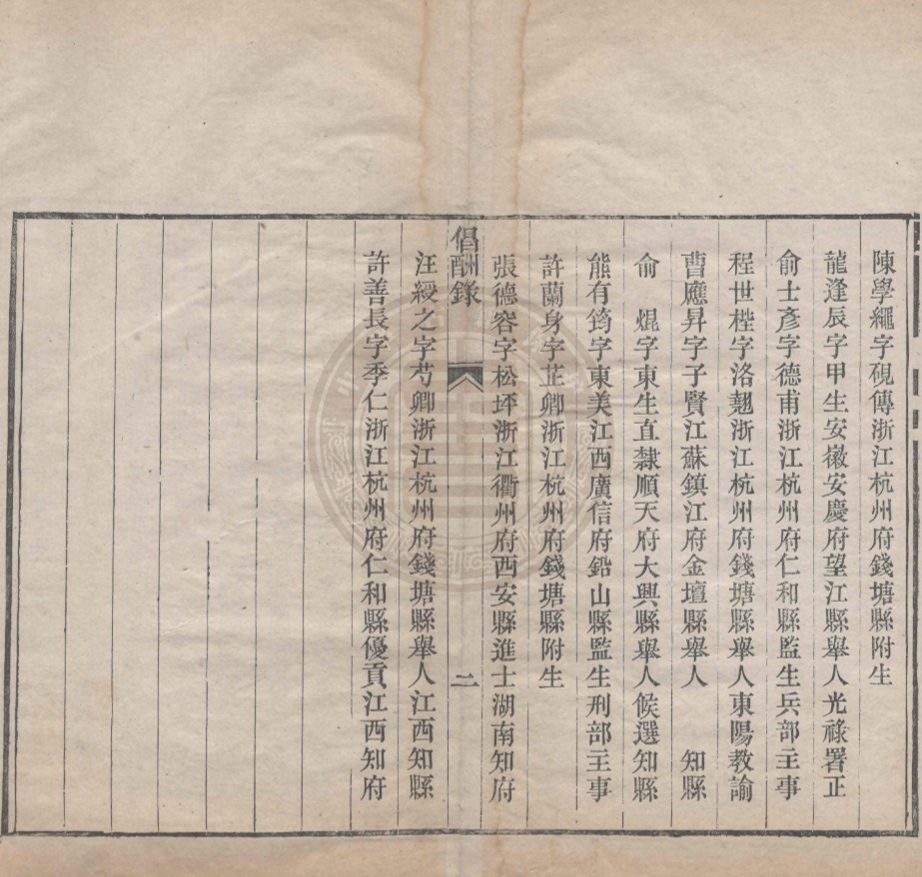 陳學繩字硯傳浙江杭州府錢塘縣附生
龍逢辰字甲生安徽安慶府望江縣舉人光祿署正
俞士彥字德甫浙江杭州府仁和縣監生兵部主事
程世桂字洛翹浙江杭州府錢塘縣舉人東陽教諭
曹應昇字子賢江蘇鎮江府金壇縣舉人 知縣
俞 焜字東生直隸順天府大興縣舉人候選知縣
熊有筠字東美江西廣信府鉛山縣監生刑部主事
許蘭身字芷卿浙江杭州府錢塘縣附生
張德容字松坪浙江衢州府西安縣進士湖南知府
倡酬錄 二
汪綬之字芍卿浙江杭州府錢塘縣舉人江西知縣
許善長字季仁浙江杭州府仁和縣優貢江西知府